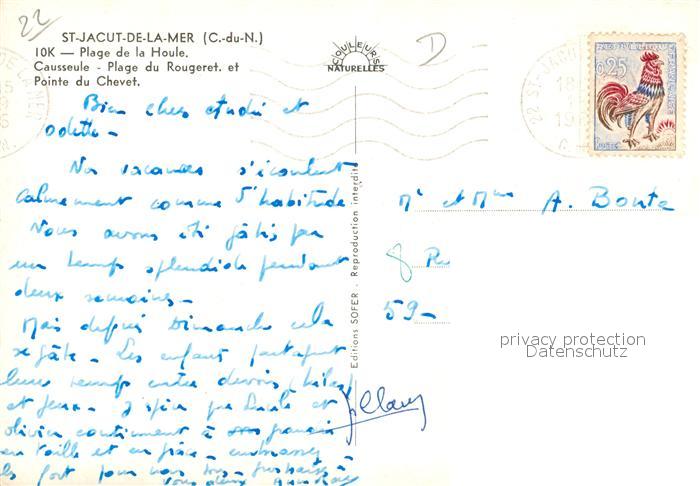 22
ST-JACUT-DE-LA-MER (C.-du-N.)
10K — Plage de la Houle.
Causseule - Plage du Rougeret. et
Pointe du Chevet.
COULEURS
NATURELLES
D
0,25
Bien chers et
Odette -
Nos vacances s'écoulent
calmement comme d'habitude
Nous avons été gâtés par
un temps splendide pendant
deux semaines -
Mais depuis Dimanche cela
se gâte - Les enfants partagent
leur temps entre devoirs
et jeux - J'espère que et
Olivier continuent à
en taille et en - embrassez
les fort pour nous tous -
vous deux
Editions SOFER. Reproduction interdite
Mr et Mme A. Bonte
8 Ru
59 -
privacy protection
Datenschutz